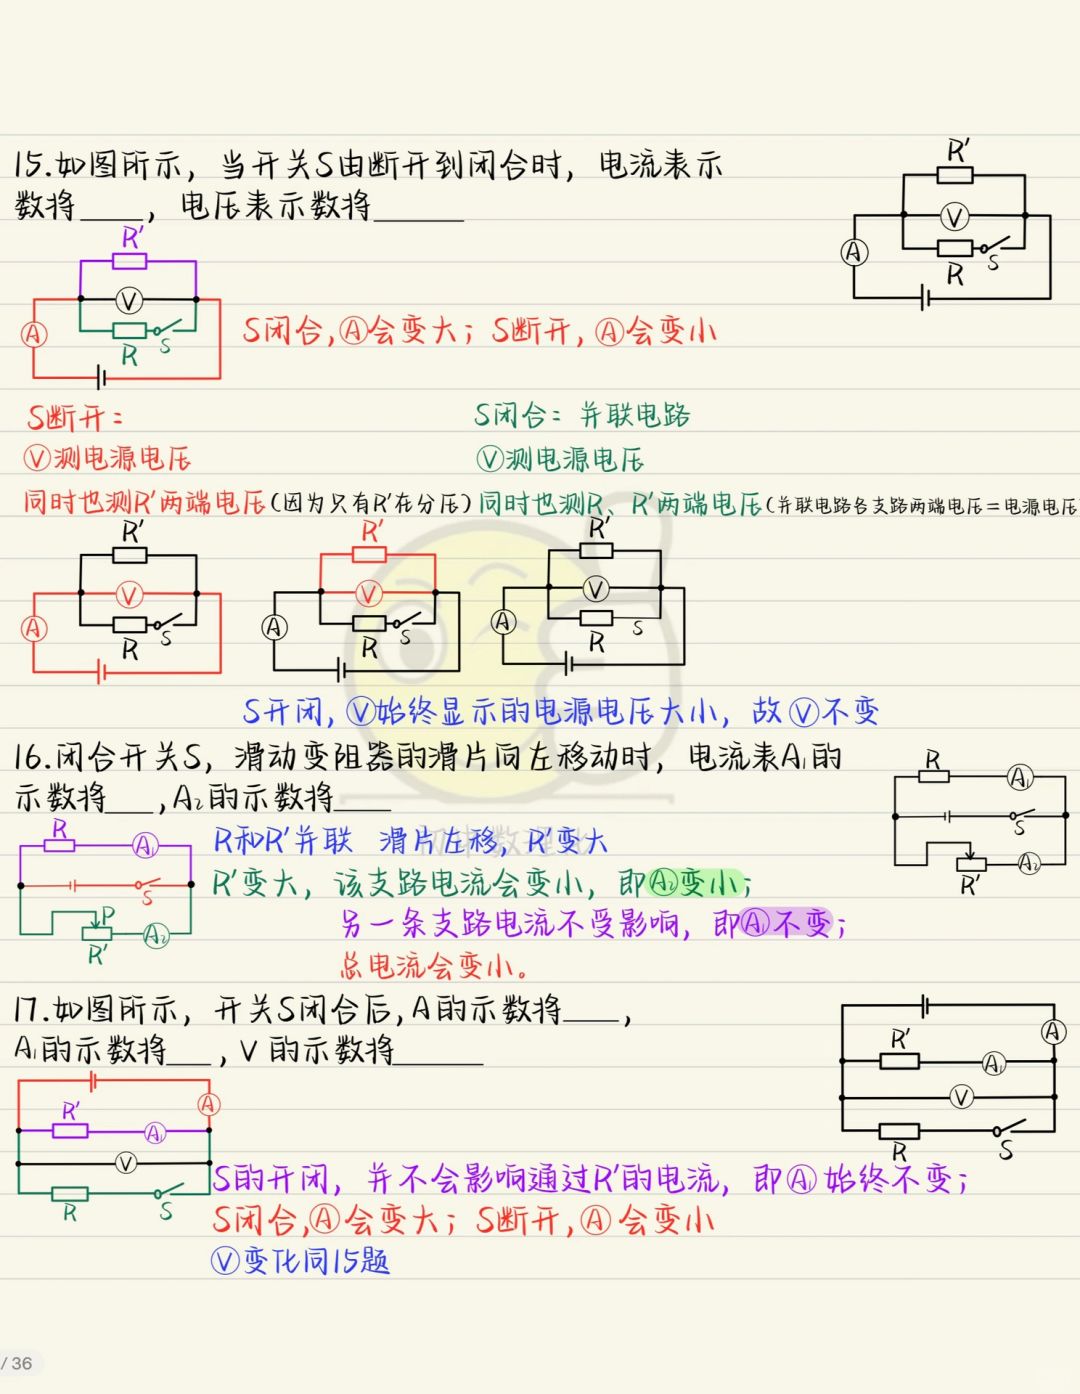 15.如图所示，当开关S由断开到闭合时，电流表示
数将____，电压表示数将______
R'
V
A
R
S
R'
V
A
R
S
S闭合,Ⓐ会变大；S断开,Ⓐ会变小
S断开：
Ⓥ测电源电压
同时也测R'两端电压(因为只有R'在分压)
S闭合：并联电路
Ⓥ测电源电压
同时也测R、R'两端电压(并联电路各支路两端电压=电源电压
R'
V
A
R
S
R'
V
A
R
S
R'
V
A
R
S
S开闭,Ⓥ始终显示的电源电压大小，故Ⓥ不变
16.闭合开关S，滑动变阻器的滑片向左移动时，电流表A₁的
示数将___,A₂的示数将____
R
A₁
S
A₂
R'
R
A₁
S
P
A₂
R'
R和R'并联 滑片左移，R'变大
R'变大，该支路电流会变小，即A₂变小；
另一条支路电流不受影响，即A₁不变；
总电流会变小。
初中数理化
17.如图所示，开关S闭合后,A的示数将____，
A₁的示数将___，V的示数将______
A
R'
A₁
V
R
S
A
R'
A₁
V
R
S
S的开闭，并不会影响通过R'的电流，即A₁始终不变；
S闭合,Ⓐ会变大；S断开,Ⓐ会变小
Ⓥ变化同15题
/ 36